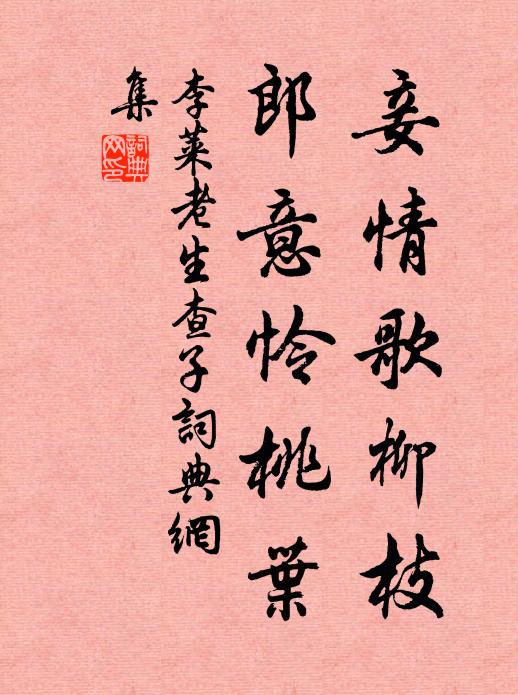 妾情歌柳枝
郎意怜桃葉
李萊老生查子詞典網
集
詞典網印